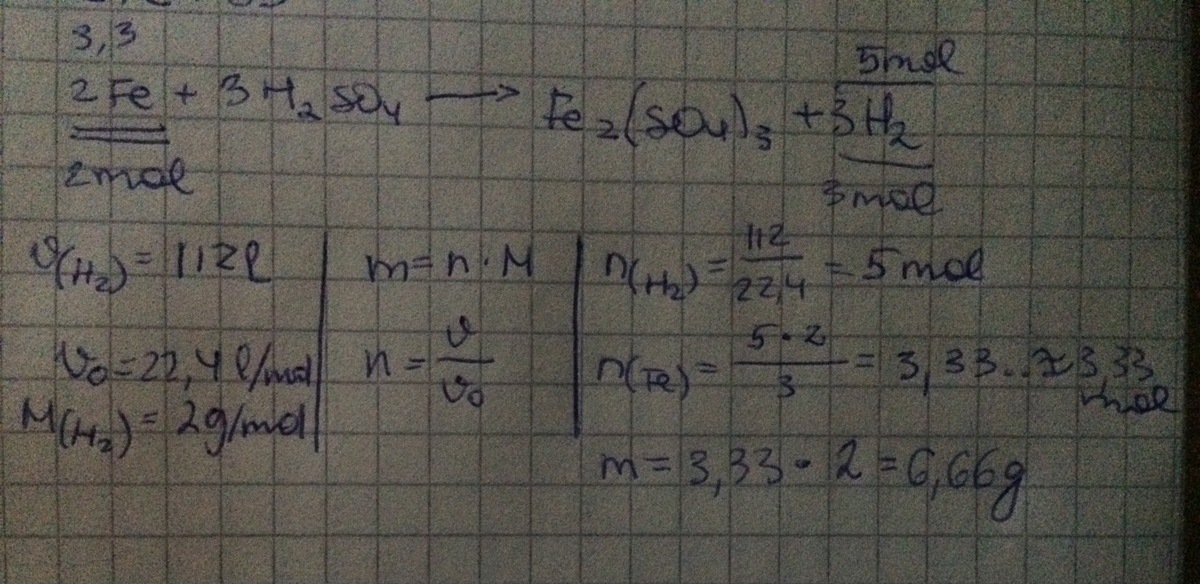 3,3
5mol
2Fe + 3H₂SO₄ ⟶ Fe₂(SO₄)₃ + 3H₂
2mol
3mol
υ(H₂) = 112l
υ₀ = 22,4 l/mol
M(H₂) = 2g/mol
m = n · M
n = υ/υ₀
n(H₂) = 112/22,4 = 5mol
n(Fe) = 5·2/3 = 3,33.. ≈ 3,33 mol
m = 3,33 · 2 = 6,66g